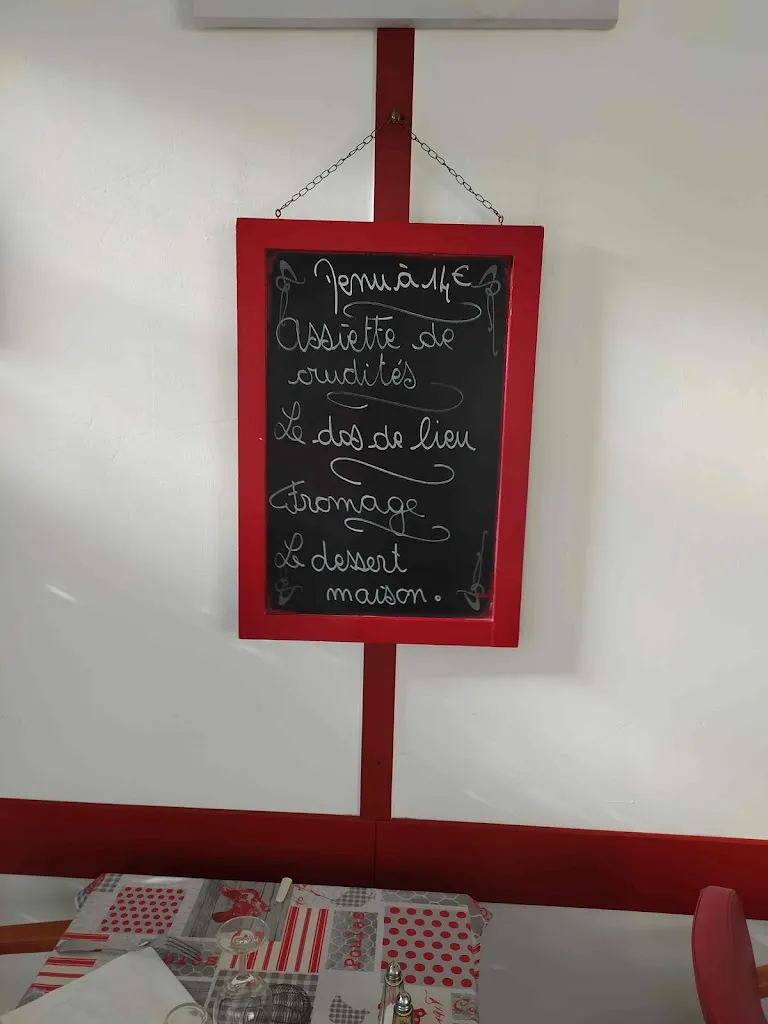 Menu à 14€
Assiette de
crudités
Le dos de lieu
Fromage
Le dessert
maison.
Poules